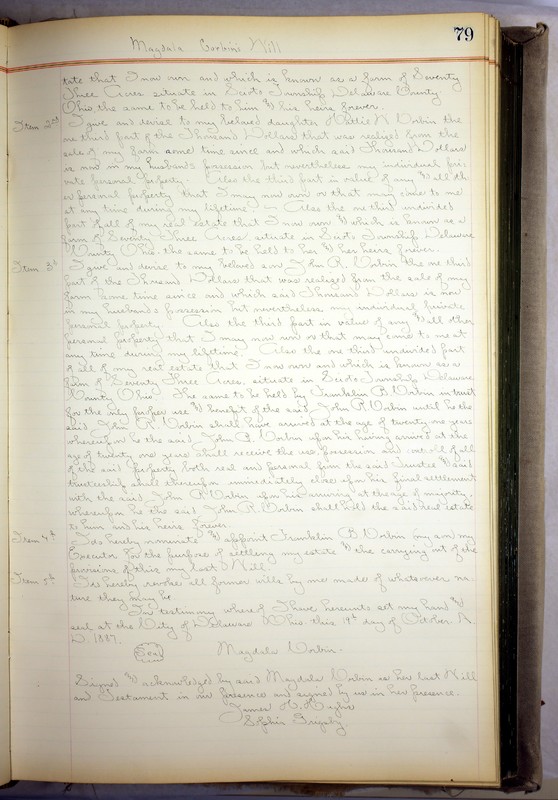 79
Magdala Corbin's Will
tate that I now own and which is known as a farm of Seventy
Three Acres situate in Scioto Township Delaware County
Ohio the same to be held to him & his heirs forever.
Item 2nd I give and devise to my beloved daughter Hattie N Corbin the
one third part of the Thousand Dollars that was realized from the
sale of my farm some time since and which said Thousand Dollars
is now in my husbands possession but nevertheless my individual pri-
vate personal property. Also the third part in value of any & all oth
er personal property that I may now own or that may come to me
at any time during my lifetime. Also the one third undivided
part of all of my real estate that I now own & which is known as a
farm of Seventy Three Acres situate in Scioto Township Delaware
County Ohio the same to be held to her & her heirs forever.
Item 3d I give and devise to my beloved son John R. Corbin the one third
part of the Thousand Dollars that was realized from the sale of my
farm some time since and which said Thousand Dollars is now
in my husbands possession but nevertheless my individual private
personal property. Also the third part in value of any & all other
personal property that I may now own or that may come to me at
any time during my lifetime. Also the one third undivided part
of all of my real estate that I now own and which is known as a
farm of Seventy Three Acres, situate in Scioto Township Delaware
County Ohio The same to be held by Franklin B. Corbin in trust
for the only proper use & benefit of the said John R Corbin until he the
said John R Corbin shall have arrived at the age of twenty one years
whereupon he the said John R. Corbin upon his having arrived at the
age of twenty one years shall receive the use possession and control of all
of the said property both real and personal from the said Trustee & said
trusteeship shall thereupon immediately close upon his final settlement
with the said John R Corbin upon his arriving at the age of majority.
whereupon he the said John R. Corbin shall hold the said real estate
to him and his heirs forever.
Item 4th I do hereby nominate & appoint Franklin B. Corbin my son my
Executor for the purpose of settling my estate & the carrying out of the
provisions of this my last Will.
Item 5th I do hereby revoke all former wills by me made of whatsoever na-
ture they may be
In testimony whereof I have hereunto set my hand &
seal at the City of Delaware Ohio this 19th day of October A.
D. 1887.
Seal Magdala Corbin.
Signed & acknowledged by said Magdala Corbin as her last Will
and Testament in our presence and signed by us in her presence.
James
Sophia Grigsby